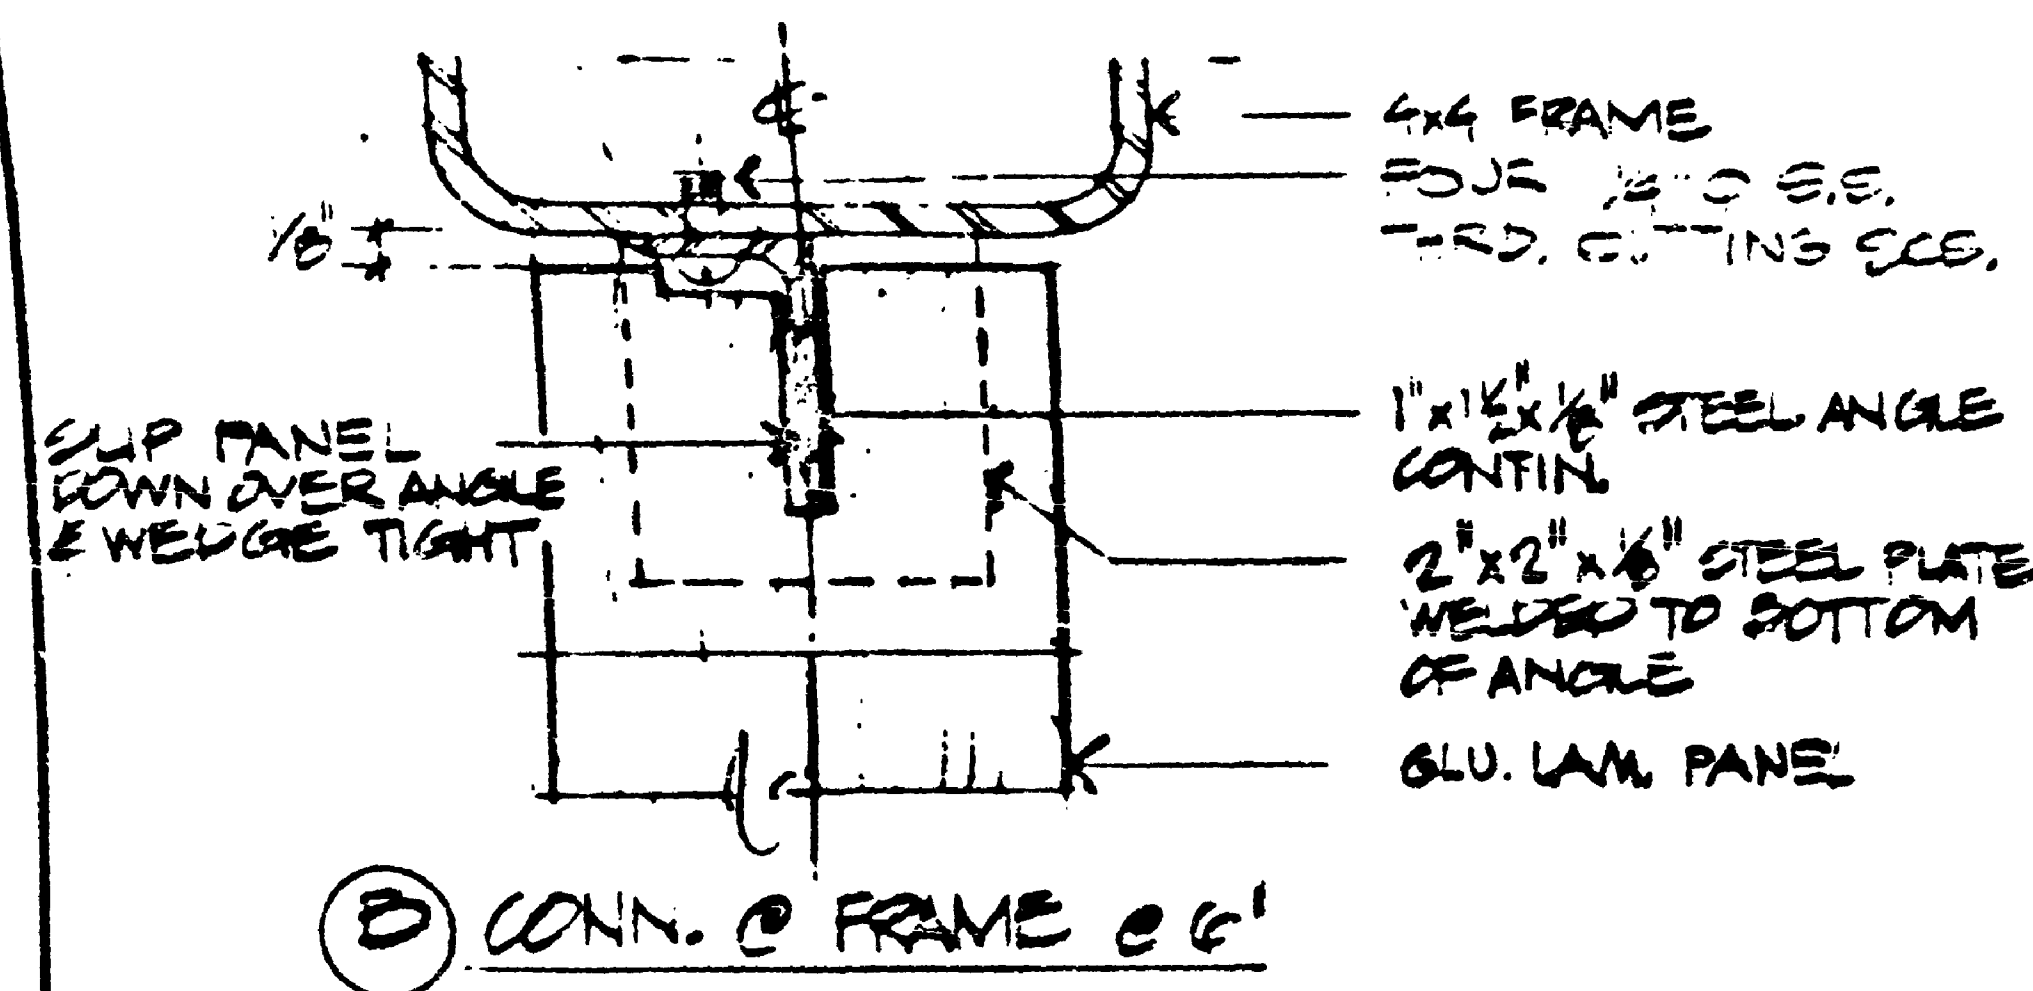 ℄
4x4 FRAME
FOUR S.S.
THRD. CUTTING SCS.
1/8"
1" x 1 1/2" x 1/8" STEEL ANGLE
CONTIN.
SLIP PANEL
DOWN OVER ANGLE
& WEDGE TIGHT
2" x 2" x 1/8" STEEL PLATE
WELDED TO BOTTOM
OF ANGLE
GLU. LAM. PANEL
B CONN. @ FRAME @ 6'